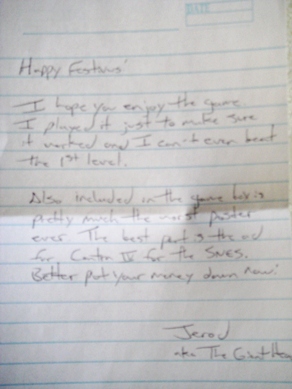 DATE
Happy Festivus!
I hope you enjoy the game.
I played it just to make sure
it worked and I can't even beat
the 1st level.
Also included in the game box is
pretty much the worst poster
ever. The best part is the ad
for Contra IV for the SNES.
Better put your money down now!
Jerod
aka The Giant